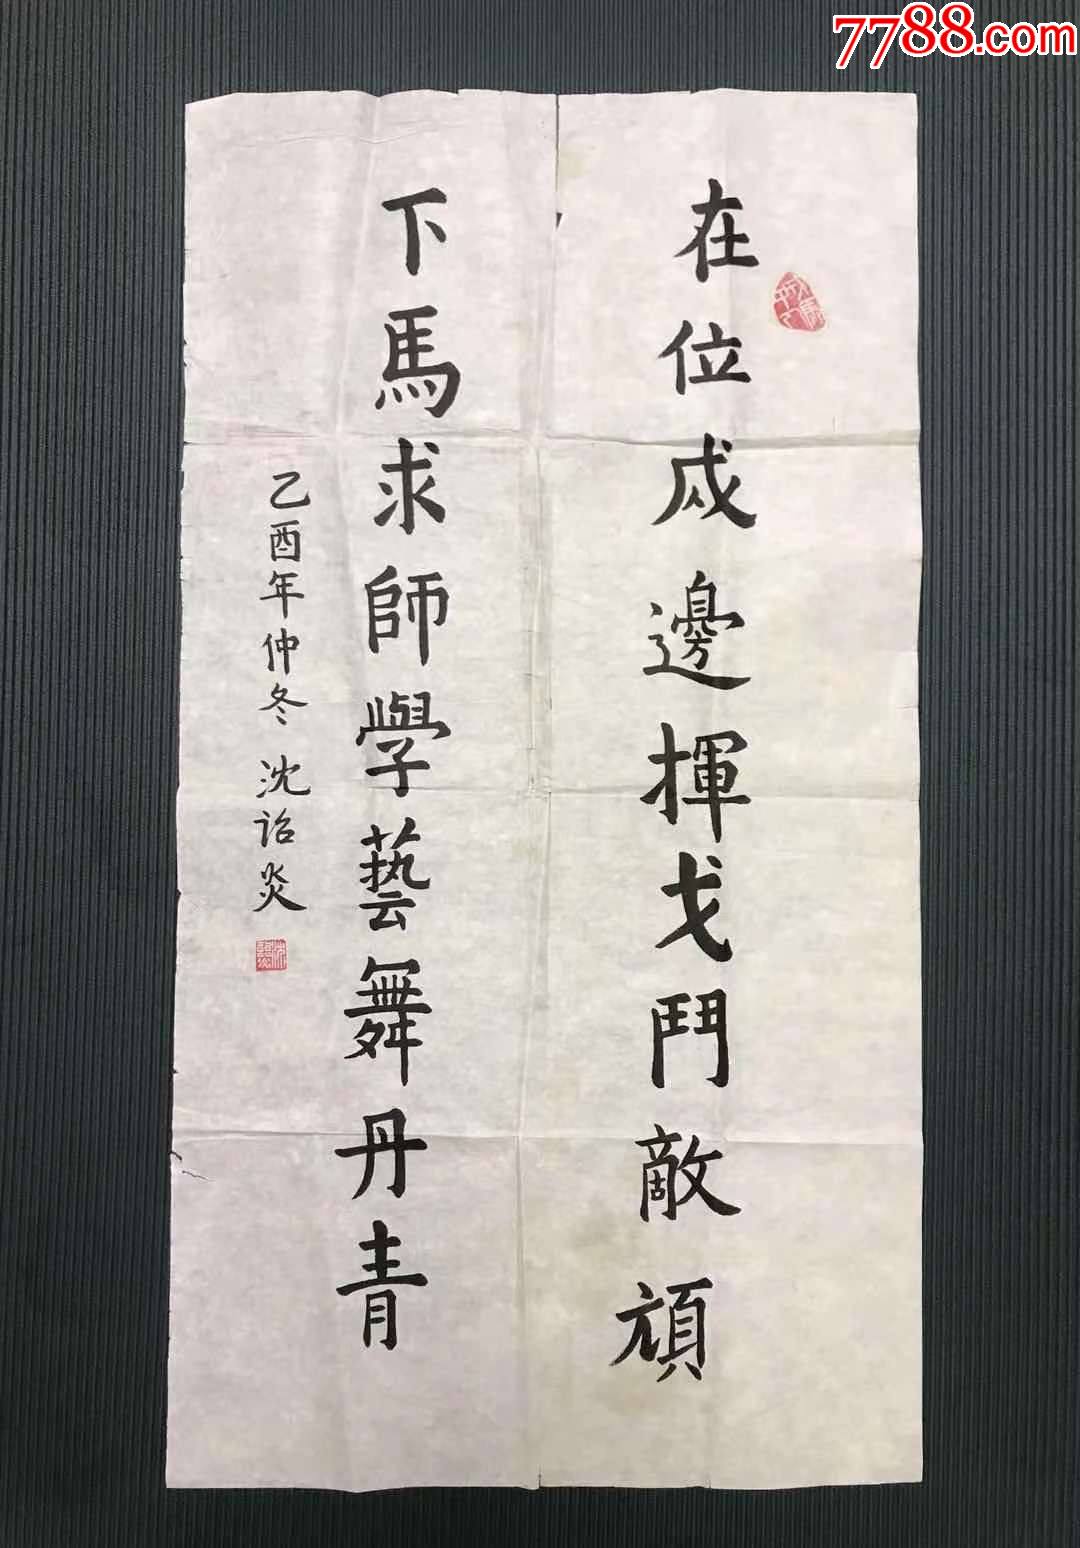 7788.com
在位戍邊揮戈鬥敵頑
下馬求師學藝舞丹青
乙酉年仲冬 沈詒炎